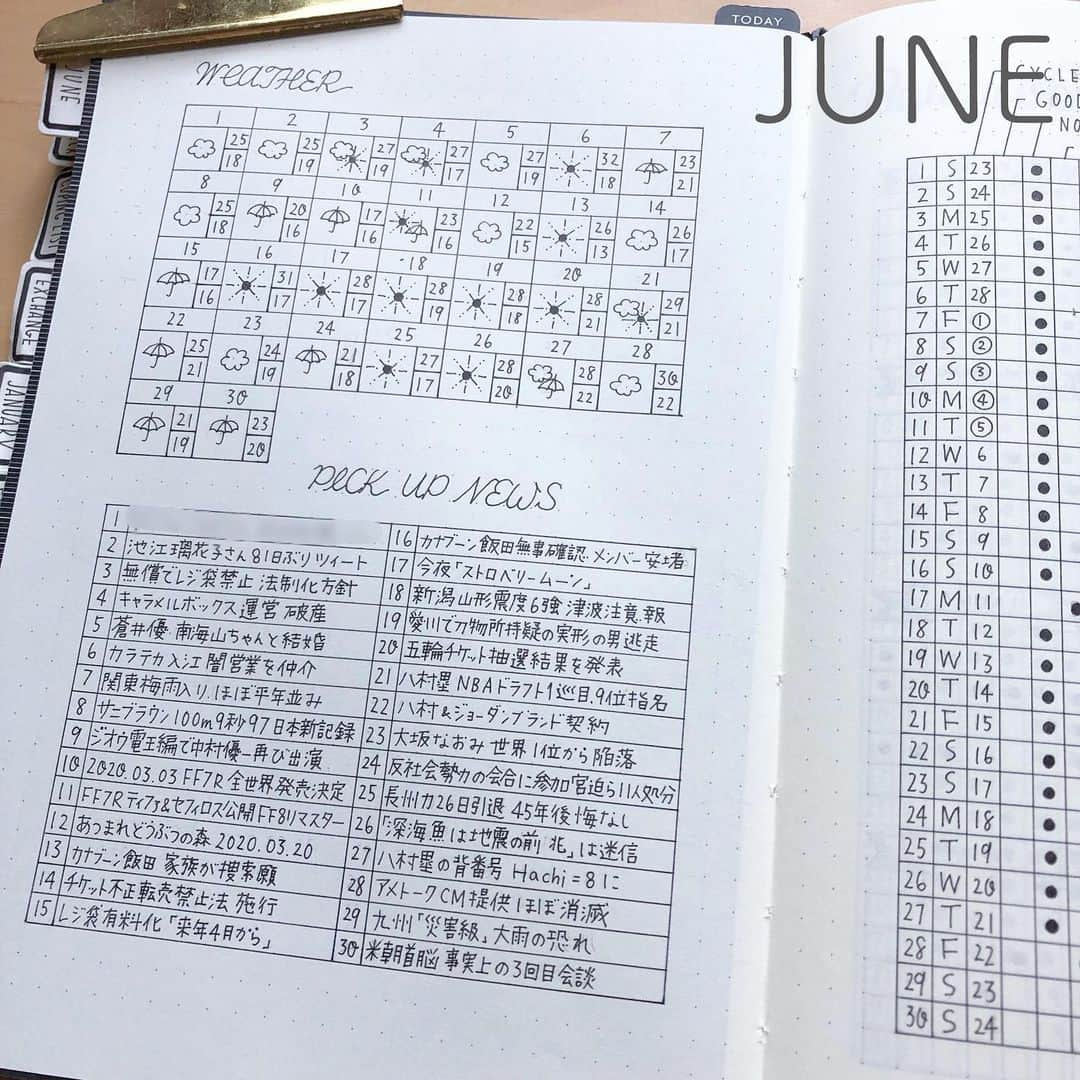 TODAY
JUNE
JUNE
EXCHANGE
JANUARY
WEATHER
1 2 3 4 5 6 7
25 25 27 27 27 32 23
18 19 19 17 19 18 21
8 9 10 11 12 13 14
25 20 17 23 22 26 26
18 16 16 16 15 13 17
15 16 17 18 19 20 21
17 31 28 28 28 28 29
16 17 17 19 18 21 21
22 23 24 25 26 27 28
25 24 21 27 28 28 30
21 19 18 17 20 22 22
29 30
21 23
19 20
PICK UP NEWS
1
2 池江璃花子さん81日ぶりツイート
3 無償でレジ袋禁止 法制化方針
4 キャラメルボックス運営 破産
5 蒼井優・南海山ちゃんと結婚
6 カラテカ入江 闇営業を仲介
7 関東梅雨入り、ほぼ平年並み
8 サニブラウン100m9秒97日本新記録
9 ジオウ電王編で中村優一再び出演
10 2020.03.03 FF7R 全世界発売決定
11 FF7Rティファ&セフィロス公開FF8リマスター
12 あつまれどうぶつの森 2020.03.20
13 カナブーン飯田 家族が捜索願
14 チケット不正転売禁止法 施行
15 レジ袋有料化「来年4月から」
16 カナブーン飯田無事確認 メンバー安堵
17 今夜「ストロベリームーン」
18 新潟山形震度6強 津波注意報
19 愛川で刃物所持疑の実形の男逃走
20 五輪チケット抽選結果を発表
21 八村塁 NBAドラフト1巡目、9位指名
22 八村&ジョーダンブランド契約
23 大坂なおみ 世界1位から陥落
24 反社会勢力の会合に参加宮迫ら11人処分
25 長州力26日引退 45年後悔なし
26 「深海魚は地震の前兆」は迷信
27 八村塁の背番号 Hachi=8に
28 アメトークCM提供ほぼ消滅
29 九州「災害級」大雨の恐れ
30 米朝首脳 事実上の3回目会談
CYCLE
GOOD
NO
1 S 23
2 S 24
3 M 25
4 T 26
5 W 27
6 T 28
7 F ①
8 S ②
9 S ③
10 M ④
11 T ⑤
12 W 6
13 T 7
14 F 8
15 S 9
16 S 10
17 M 11
18 T 12
19 W 13
20 T 14
21 F 15
22 S 16
23 S 17
24 M 18
25 T 19
26 W 20
27 T 21
28 F 22
29 S 23
30 S 24